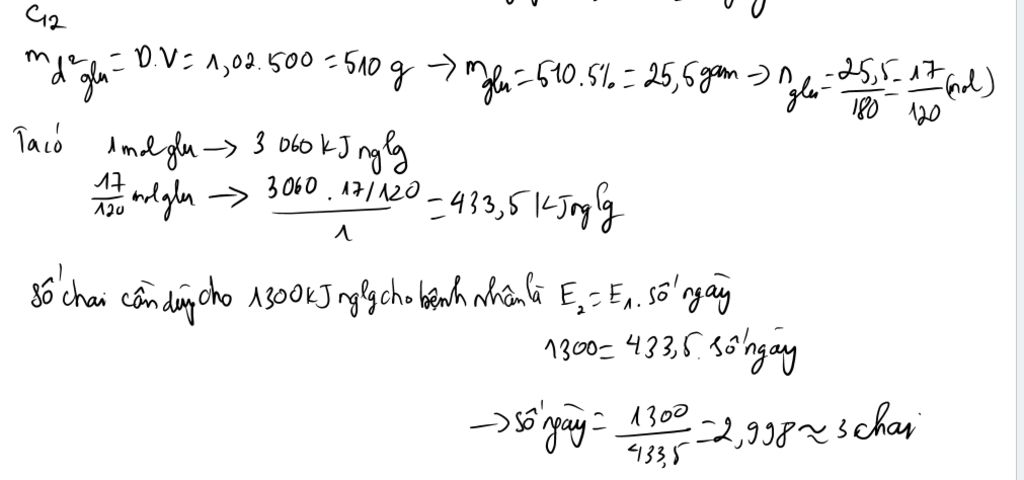 C12
m d² glu = D.V = 1,02.500 = 510 g → m glu = 510.5% = 25,5 gam → n glu = 25,5/180 = 17/120 (mol)
Ta có 1 mol glu → 3 060 kJ nglg
17/120 mol glu → 3060 . 17/120 / 1 = 433,5 kJ nglg
Số chai cần dùng cho 1300 kJ nglg cho bệnh nhân là E₂ = E₁. số ngày
1300 = 433,5. số ngày
→ số ngày = 1300/433,5 = 2,998 ≈ 3 chai